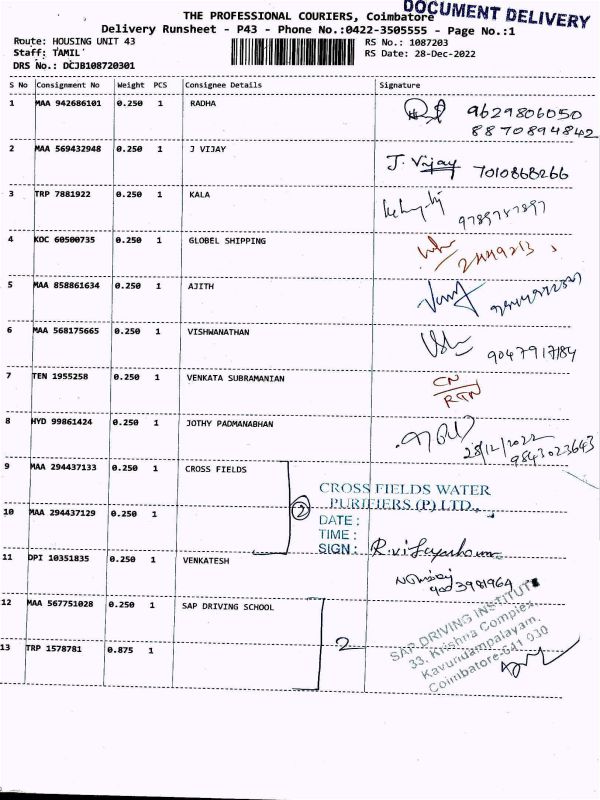 THE PROFESSIONAL COURIERS, Coimbatore
DOCUMENT DELIVERY
Delivery Runsheet - P43 - Phone No.:0422-3505555 - Page No.:1
Route: HOUSING UNIT 43 RS No.: 1087203
Staff: TAMIL RS Date: 28-Dec-2022
DRS No.: DCJB108720301
S No Consignment No Weight PCS Consignee Details Signature
1 MAA 942686101 0.250 1 RADHA 9629806050
8870894842
2 MAA 569432948 0.250 1 J VIJAY J. Vijay 7010868266
3 TRP 7881922 0.250 1 KALA 9789787897
4 KOC 60500735 0.250 1 GLOBEL SHIPPING
5 MAA 858861634 0.250 1 AJITH
6 MAA 568175665 0.250 1 VISHWANATHAN 9047917184
7 TEN 1955258 0.250 1 VENKATA SUBRAMANIAN CN
RTN
8 HYD 99861424 0.250 1 JOTHY PADMANABHAN 28/12/2022
9843023643
9 MAA 294437133 0.250 1 CROSS FIELDS
2 CROSS FIELDS WATER
PURIFIERS (P) LTD.,
10 MAA 294437129 0.250 1 DATE :
TIME :
SIGN :
11 DPI 10351835 0.250 1 VENKATESH
9003981964
12 MAA 567751028 0.250 1 SAP DRIVING SCHOOL
2 SAP DRIVING INSTITUTE
33, Krishna Complex,
Kavundampalayam,
Coimbatore-641 030
13 TRP 1578781 0.875 1